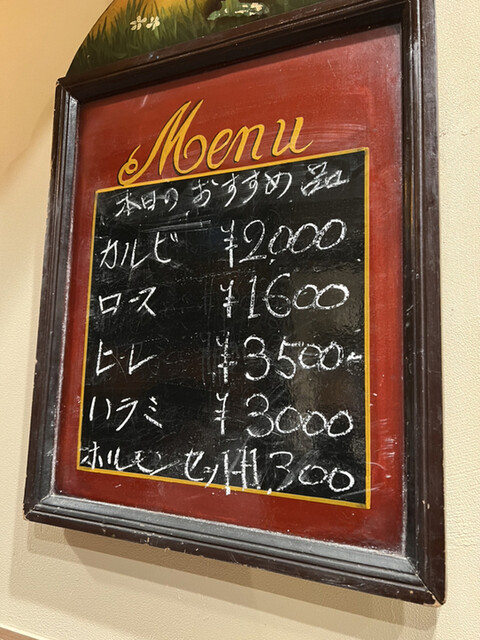 Menu
本日のおすすめ品
カルビ ¥2,000
ロース ¥1600
ヒレ ¥3500~
ハラミ ¥3000
ホルモンセット ¥1,300